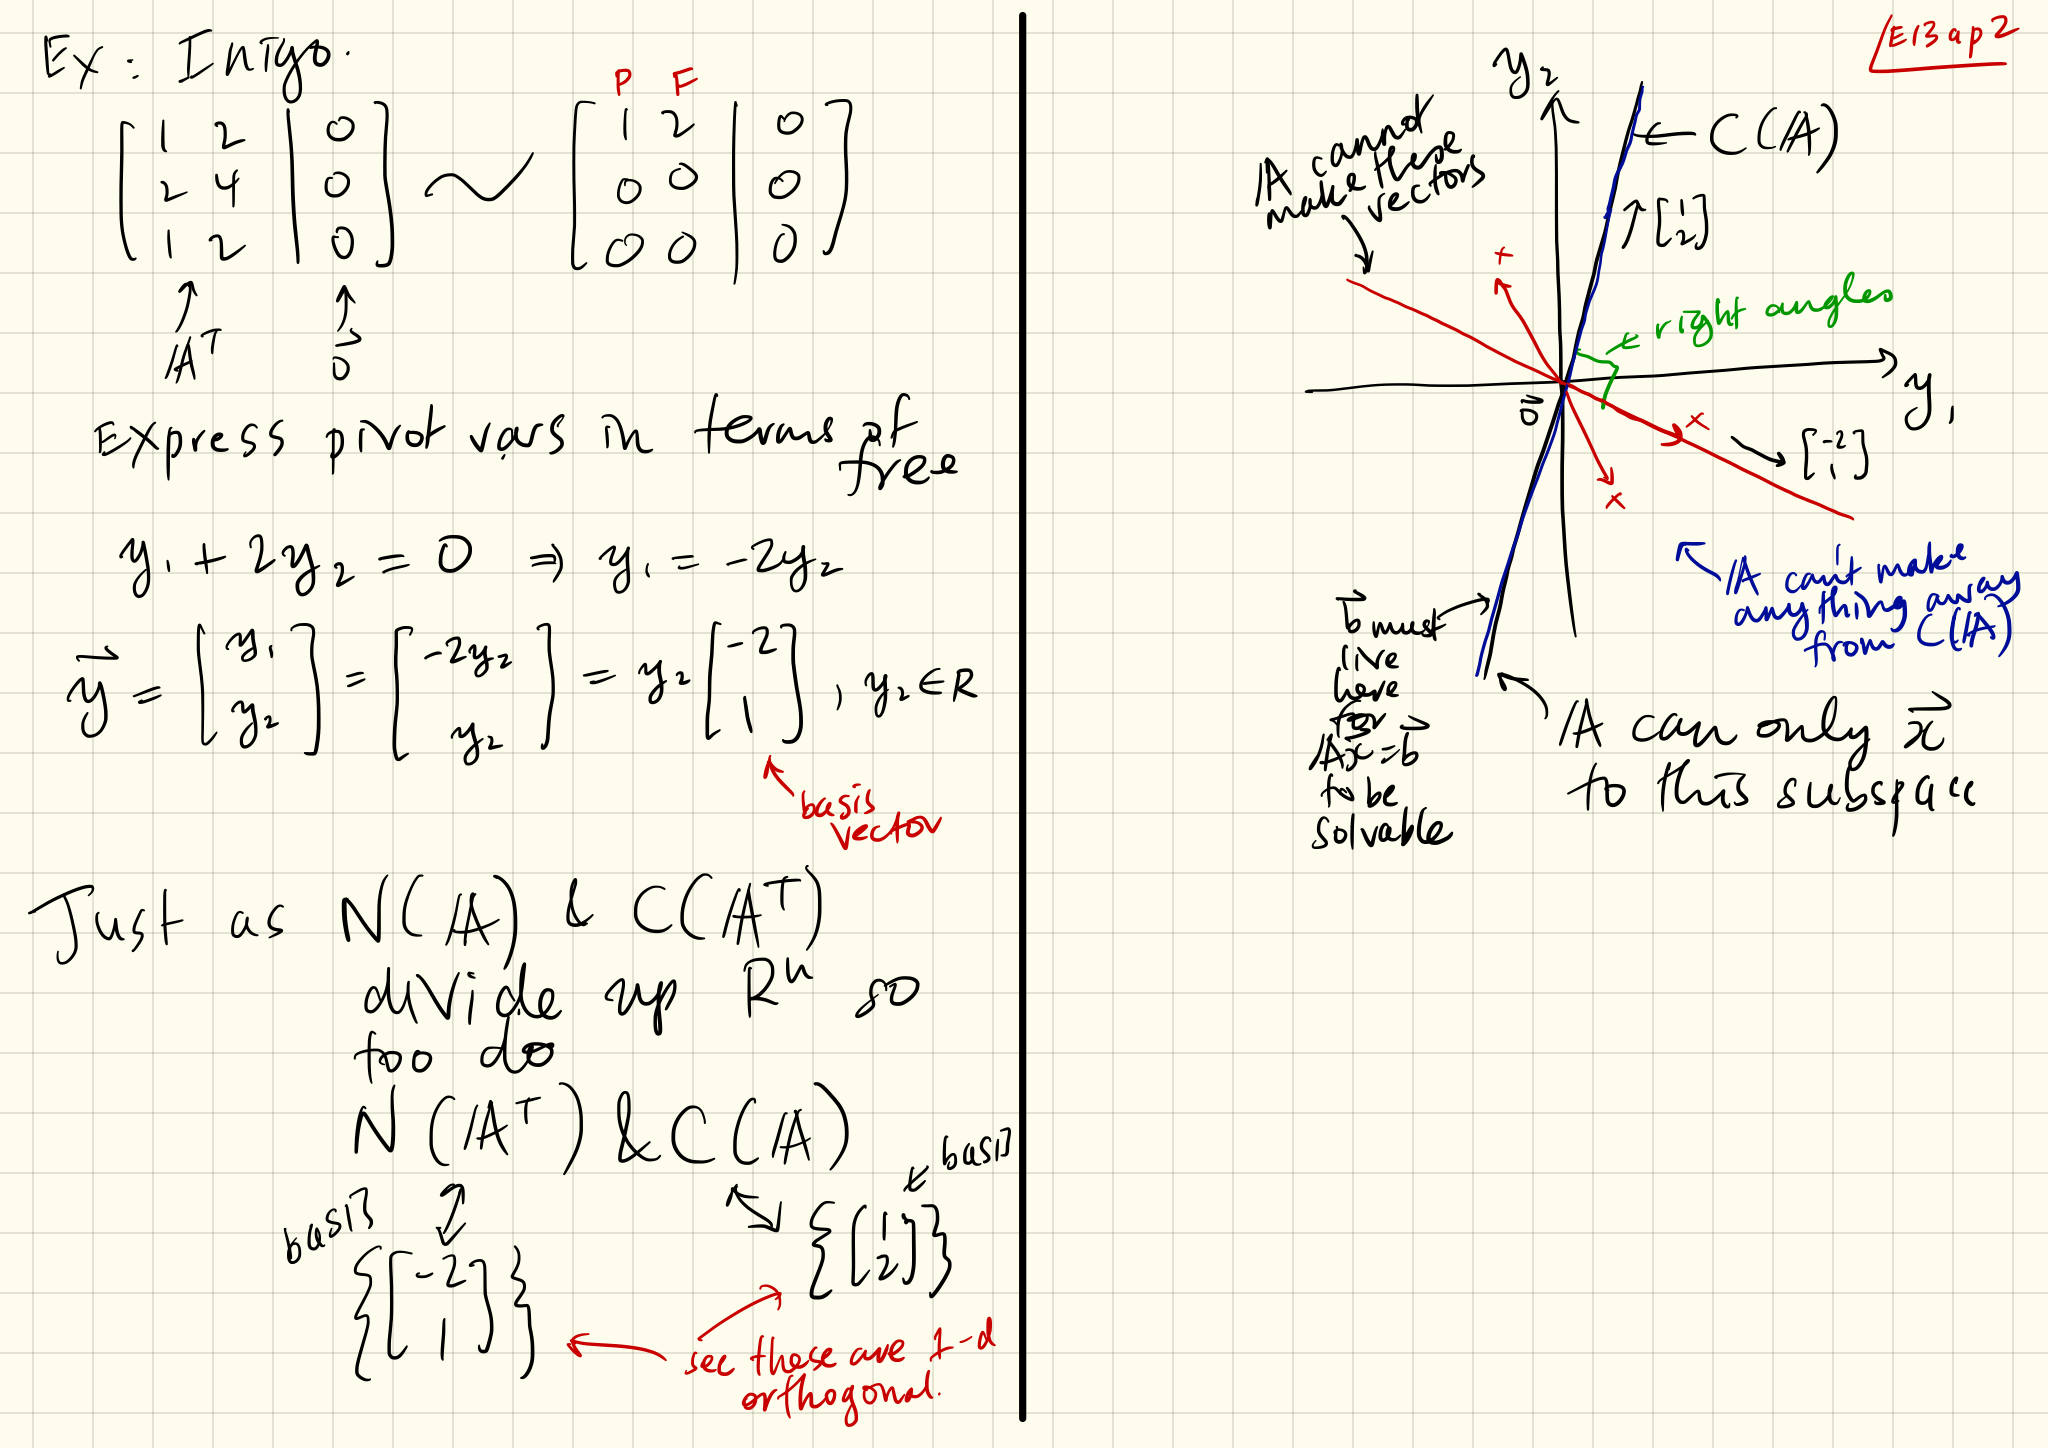 Ex: Inigo.
P F
[1 2 | 0] ~ [1 2 | 0]
[2 4 | 0] [0 0 | 0]
[1 2 | 0] [0 0 | 0]
↑ ↑
Aᵀ 0⃗
Express pivot vars in terms of
free
y₁ + 2y₂ = 0 ⇒ y₁ = -2y₂
y⃗ = [y₁ y₂] = [-2y₂ y₂] = y₂ [-2 1], y₂ ∈ R
basis
vector
Just as N(A) & C(Aᵀ)
divide up Rⁿ so
too do
N(Aᵀ) & C(A)
basis
{[-2 1]}
basis
{[1 2]}
see these are 1-d
orthogonal.
E13ap2
y₂
← C(A)
A cannot
make these
vectors
[1 2]
x
← right angles
0⃗
y₁
x
[-2 1]
x
A can't make
anything away
from C(A)
b⃗ must
live
here
for
Ax⃗=b⃗
to be
solvable
A can only x⃗
to this subspace